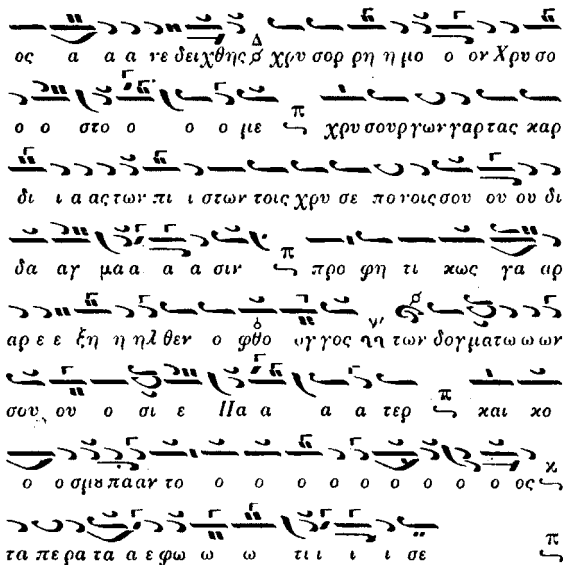 ος α α α νε δειχθης Δ χρυ σορ ρη η μο ο ον Χρυ σο
ο ο στο ο ο ο με π χρυ σουρ γων γαρ τας καρ
δι ι α ας των πι ι στων τοις χρυ σε πο νοις σου ου ου δι
δα αγ μα α α α σιν π προ φη τι κως γα αρ
αρ ε ε ξη η ηλ θεν ο φθο ογ γος γα των δογ ματω ω ων
σου ου ο σι ε Πα α α α τερ π και κο
ο ο σμȣ πα αν το ο ο ο ο ο ο ο ο ο ος κ
τα πε ρα τα α ε φω ω ω τι ι ι ι σε π